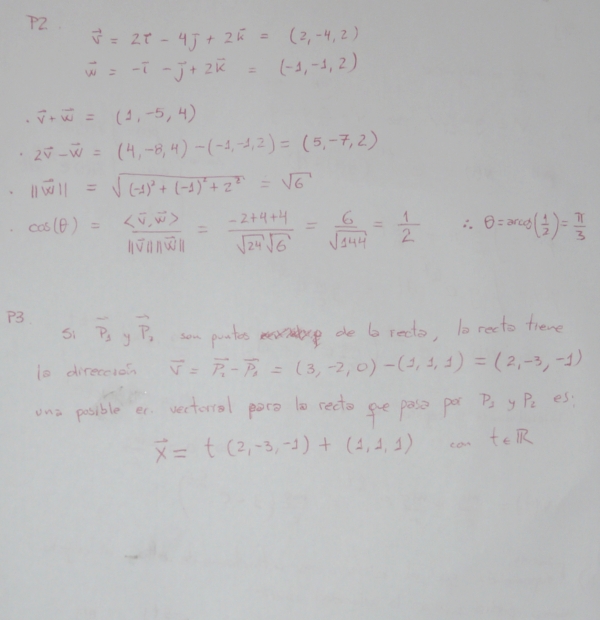 P2.
v⃗ = 2ī - 4j̄ + 2k̄ = (2, -4, 2)
w⃗ = -ī - j̄ + 2k̄ = (-1, -1, 2)
· v⃗ + w⃗ = (1, -5, 4)
· 2v⃗ - w⃗ = (4, -8, 4) - (-1, -1, 2) = (5, -7, 2)
· ||w⃗|| = √((-1)² + (-1)² + 2²) = √6
· cos(θ) = <v⃗, w⃗> / ||v⃗|| ||w⃗|| = (-2+4+4) / √24 √6 = 6/√144 = 1/2 ∴ θ = arcos(1/2) = π/3
P3
Si P⃗₁ y P⃗₂ son puntos de la recta, la recta tiene
la dirección v⃗ = P⃗₂ - P⃗₁ = (3, -2, 0) - (1, 1, 1) = (2, -3, -1)
una posible ec. vectorial para la recta que pasa por P₁ y P₂ es:
x⃗ = t (2, -3, -1) + (1, 1, 1) con t ∈ ℝ